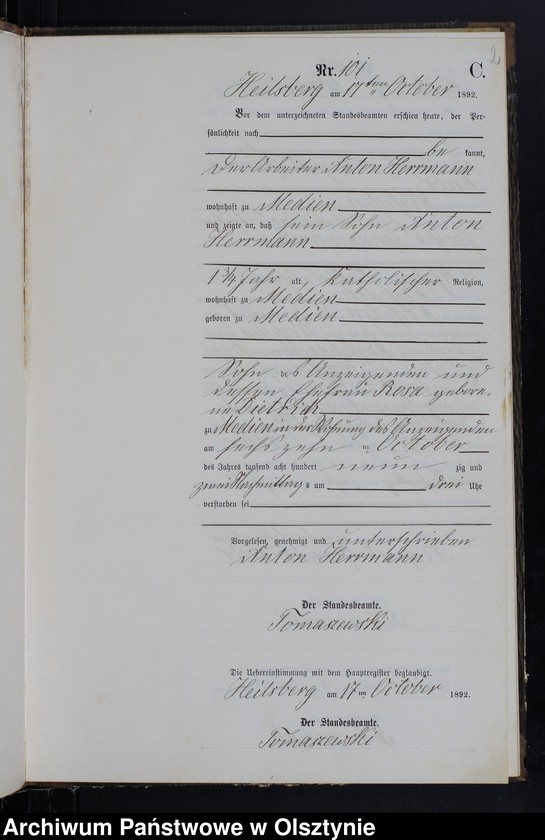 2
Nr. 101 C.
Heilsberg am 17ten October 1892.
Vor dem unterzeichneten Standesbeamten erschien heute, der Per-
sönlichkeit nach
be kannt,
der Arbeiter Anton Herrmann
wohnhaft zu Medien
und zeigte an, daß sein Sohn Anton
Herrmann
1 3/4 Jahr alt, katholischer Religion,
wohnhaft zu Medien
geboren zu Medien
Sohn des Anzeigenden und
dessen Ehefrau Rosa gebore-
ne Dietrich
zu Medien in der Wohnung des Anzeigenden
am sechszehn ten October
des Jahres tausend acht hundert neun zig und
zwei Nachmittag s um drei Uhr
verstorben sei
Vorgelesen, genehmigt und unterschrieben
Anton Herrmann
Der Standesbeamte.
Tomaszewski
Die Uebereinstimmung mit dem Hauptregister beglaubigt.
Heilsberg am 17ten October 1892.
Der Standesbeamte.
Tomaszewski
Archiwum Państwowe w Olsztynie